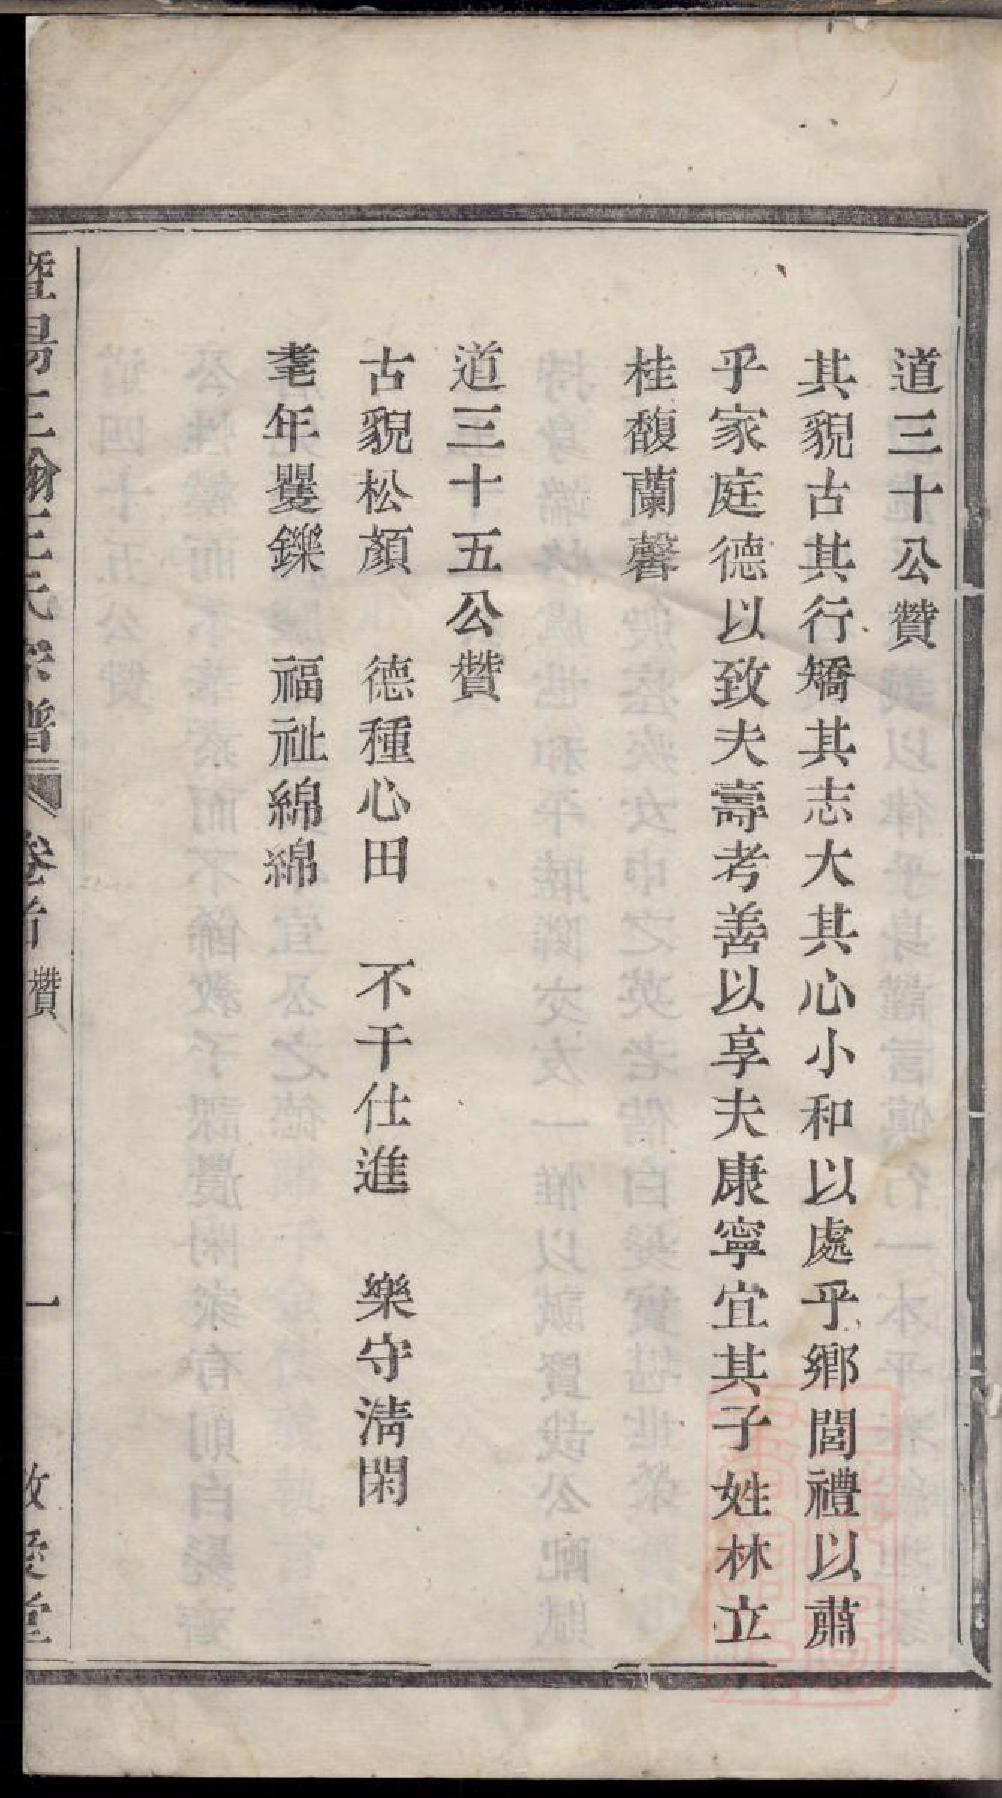 道三十公贊
其貌古其行矯其志大其心小和以處乎鄉閭禮以肅
乎家庭德以致夫壽考善以享夫康寧宜其子姓林立
桂馥蘭馨
道三十五公贊
古貌松顏 德種心田 不干仕進 樂守淸閑
耄年矍鑠 福祉綿綿
暨陽王氏宗譜 卷首 贊 一 敦愛堂